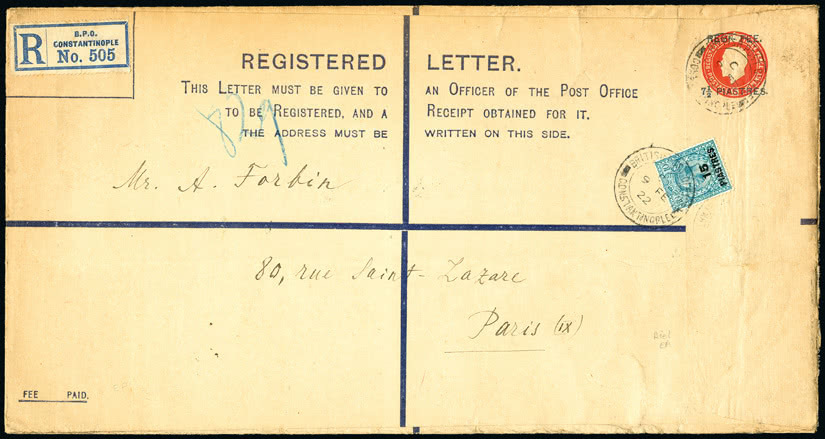 R
B.P.O.
CONSTANTINOPLE
No. 505
REGISTERED LETTER.
THIS LETTER MUST BE GIVEN TO AN OFFICER OF THE POST OFFICE
TO BE REGISTERED, AND A RECEIPT OBTAINED FOR IT.
THE ADDRESS MUST BE WRITTEN ON THIS SIDE.
829
7½ PIASTRES.
15
PIASTRES
BRITISH
9 FE
22
CONSTANTINOPLE
Mr. A. Forbin
80, rue Saint-Lazare
Paris (IX)
FEE PAID.